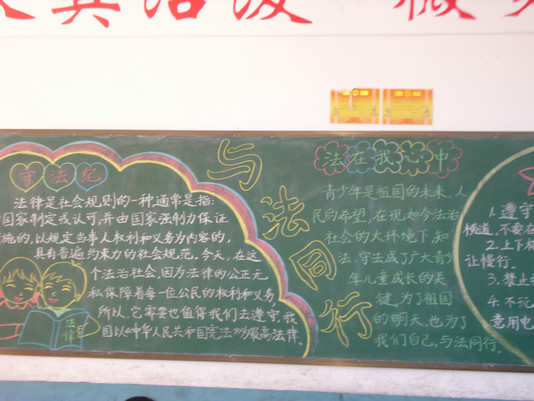 守法纪
法律是社会规则的一种,通常是指:
国家制定或认可,并由国家强制力保证
施的,以规定当事人权利和义务为内容的,
具有普遍约束力的社会规范,今天,在这
个法治社会,因为法律的公正无
私保障着每一位公民的权利和义务
所以,它需要也值得我们去遵守,我
国以《中华人民共和国宪法》为最高法律。
法律
与法同行
法在我心中
青少年是祖国的未来,人
民的希望,在现如今法治
社会的大环境下,知
法,守法成了广大青少
年儿童成长的关
键,为了祖国
的明天,也为了
我们自己,与法同行。
1.遵守
横道,不要在
2.上下楼
让慢行。
3.禁止
4.不玩
意用电